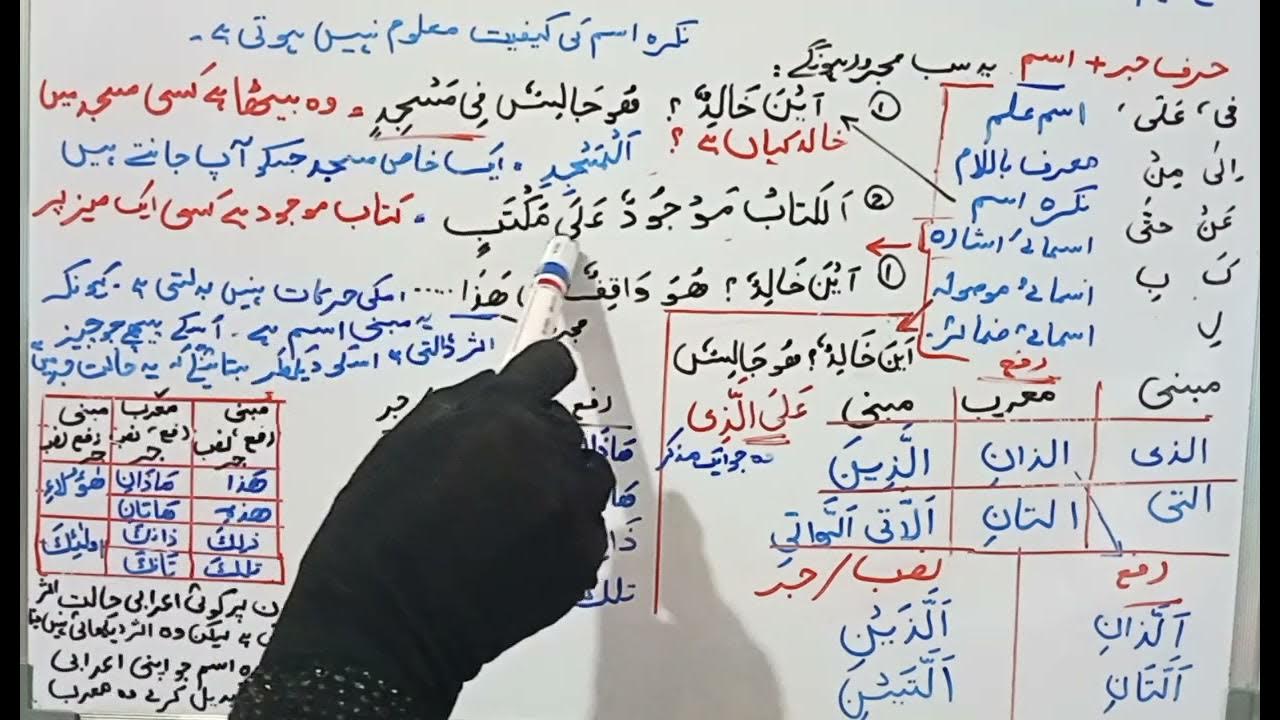 نکرہ اسم کی کیفیت معلوم نہیں ہوتی ہے۔
حرف جر + اسم یہ سب مجرور ہونگے:
فی، عَلَی،
اِلٰی مِنْ
عَنْ حتّٰی
کَ بِ
لِ
اسم علم
معرف باللام
نکرہ اسم
اسمائے اشارہ
اسمائے موصولہ
اسمائے ضمائر
① اَیْنَ خَالِدٌ؟ ھُوَ جَالِسٌ فِی مَسْجِدٍ ۔ وہ بیٹھا ہے کسی مسجد میں
خالد کہاں ہے؟
اَلْمَسْجِدِ ۔ ایسا خاص مسجد جسکو آپ جانتے ہیں
② اَلکتابُ مَوْجُوْدٌ عَلَی مَکْتَبٍ ۔ کتاب موجود ہے کسی ایک میز پر
① اَیْنَ خَالِدٌ؟ ھُوَ وَاقِفٌ ھٰذَا ..... اسکی حرکات نہیں بدلتی ہے ۔ کیونکہ
یہ مبنی اسم ہے ۔ اسکے پیچھے جو چیز
اثر ڈالتی ہے اسکو دیکھکر بتائینگے کہ یہ حالت
اَینَ خَالِدٌ؟ ھُوَ جَالِسٌ
عَلَی الَّذِی
وہ جو ایک مذکر
رفع
مبنی معرب مبنی
الذی الذانِ الَّذِینَ
التی التانِ اَلَّاتی اَلَّوَاتِی
رفع نصب / جر
اَلَّذَانِ اَلَّذَیْنِ
اَلَّتَانِ اَلَّتَیْنِ
رفع جر
تلک
مبنی معرب مبنی
رفع نصب جر رفع نصب جر رفع نصب جر
ھٰذَا ھٰذَانِ ھٰؤُلَاءِ
ھذہِ ھَاتَانِ
ذٰلِکَ ذَانِکَ اُولٰئِکَ
تلکَ تَانِکَ
ن پر کوئی اعرابی حالت اثر
ہے لیکن وہ اثر دیکھاتی ہیں
وہ اسم جو اپنی اعرابی
تبدیل کرے وہ معرب